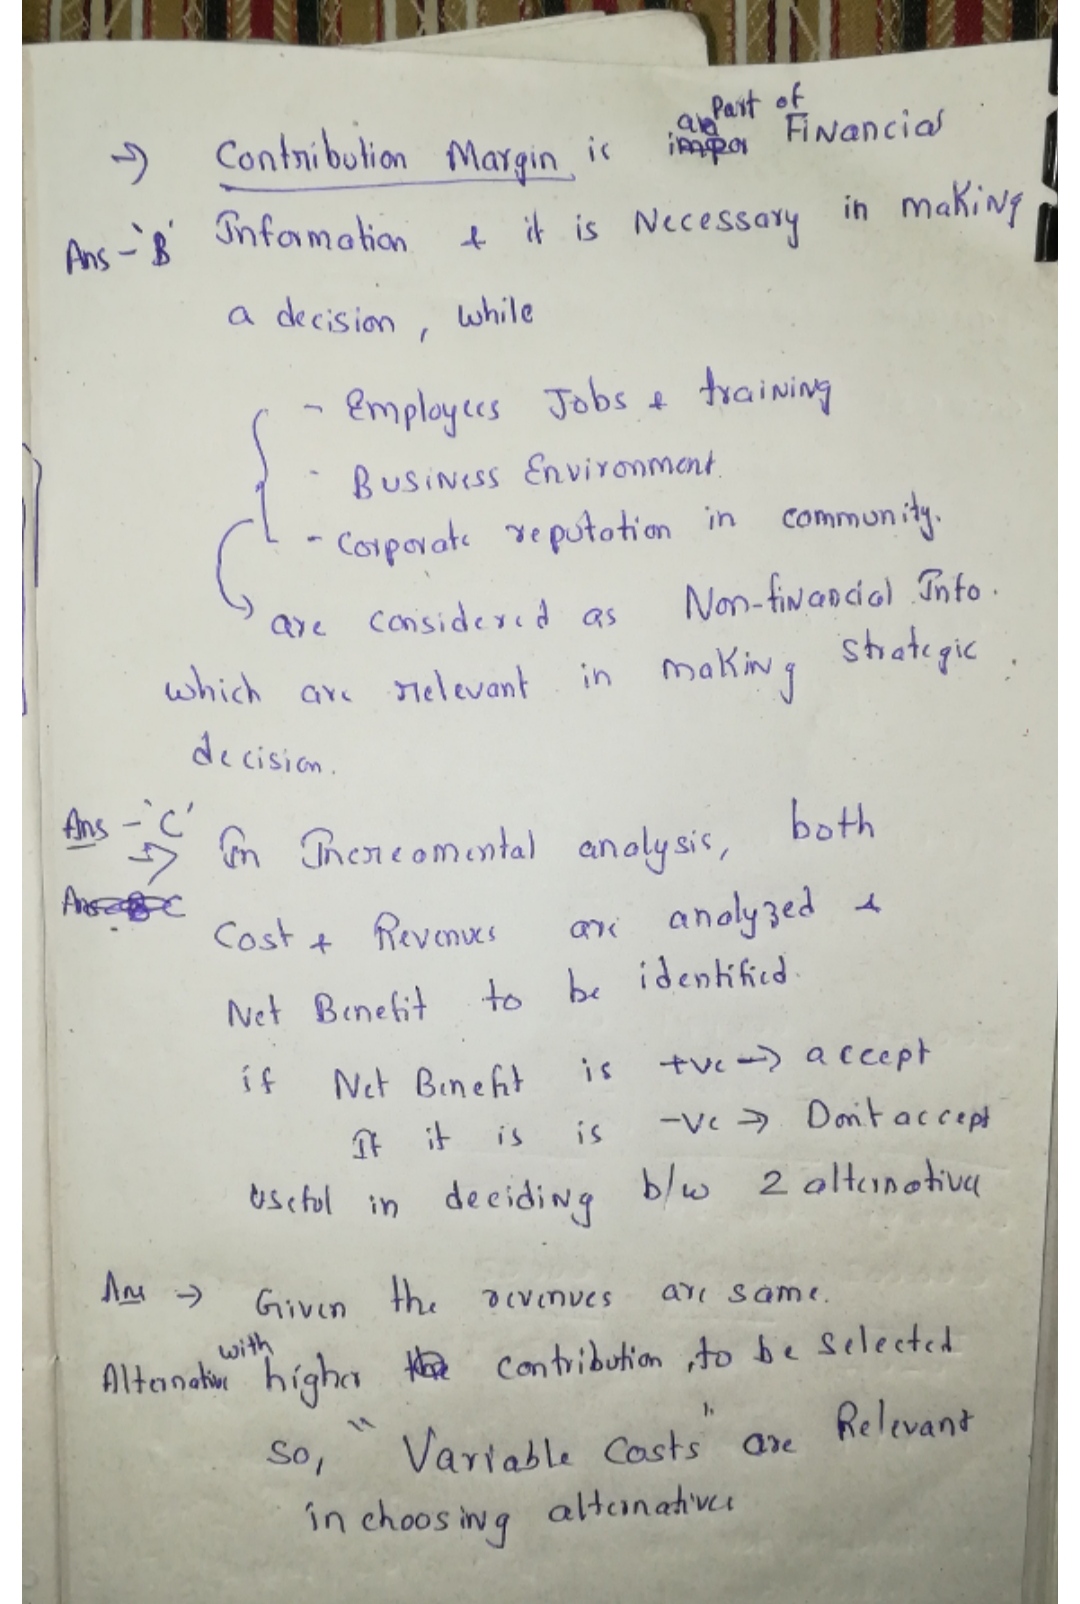 → Contribution Margin is a Part of Financial
Ans - 'B' Information & it is Necessary in making
a decision, while
- Employees Jobs & training
- Business Environment.
- Corporate reputation in community.
are considered as Non-financial Info.
which are relevant in making strategic
decision.
Ans - 'C'
→ In Increamental analysis, both
Cost & Revenues are analyzed &
Net Benefit to be identified.
if Net Benefit is +ve → accept
If it is is -ve → Don't accept
Useful in deciding b/w 2 alternative
Ans → Given the revenues are same.
Alternative with higher contribution, to be selected
so, "Variable Costs" are Relevant
in choosing alternative